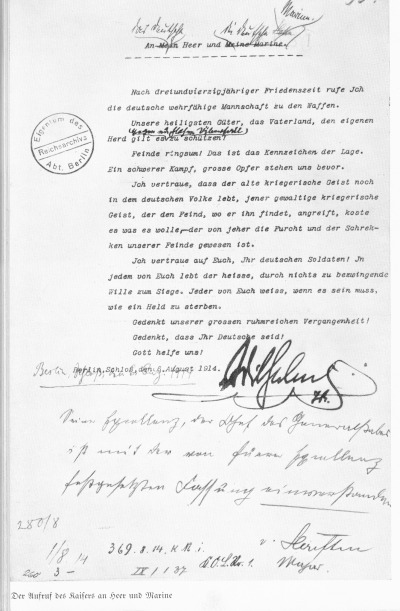 das deutsche
die deutsche
Marine.
An Mein Heer und Meine Marine.
Nach dreiundvierzigjähriger Friedenszeit rufe Jch
die deutsche wehrfähige Mannschaft zu den Waffen.
Unsere heiligsten Güter, das Vaterland, den eigenen
gegen ruchlosen Überfall
Herd gilt es zu schützen!
Feinde ringsum! Das ist das Kennzeichen der Lage.
Ein schwerer Kampf, grosse Opfer stehen uns bevor.
Jch vertraue, dass der alte kriegerische Geist noch
in dem deutschen Volke lebt, jener gewaltige kriegerische
Geist, der den Feind, wo er ihn findet, angreift, koste
es was es wolle, der von jeher die Furcht und der Schrek-
ken unserer Feinde gewesen ist.
Jch vertraue auf Euch, Jhr deutschen Soldaten! Jn
jedem von Euch lebt der heisse, durch nichts zu bezwingende
Wille zum Siege. Jeder von Euch weiss, wenn es sein muss,
wie ein Held zu sterben.
Gedenkt unserer grossen ruhmreichen Vergangenheit!
Gedenkt, dass Jhr Deutsche seid!
Gott helfe uns!
Berlin, Schloss, den 6. August 1914.
Wilhelm
Eigentum des
Reichsarchivs
Abt. Berlin
Berlin
Seine Exzellenz, der Chef des Generalstabes
ist mit der von Euere Exzellenz
festgesetzten Fassung einverstanden
v.
Major.
280/8
1/8 14
3-
369. 8. 14. K. R. i.
IV / 1 / 37
Nr. 1.
Der Aufruf des Kaisers an Heer und Marine